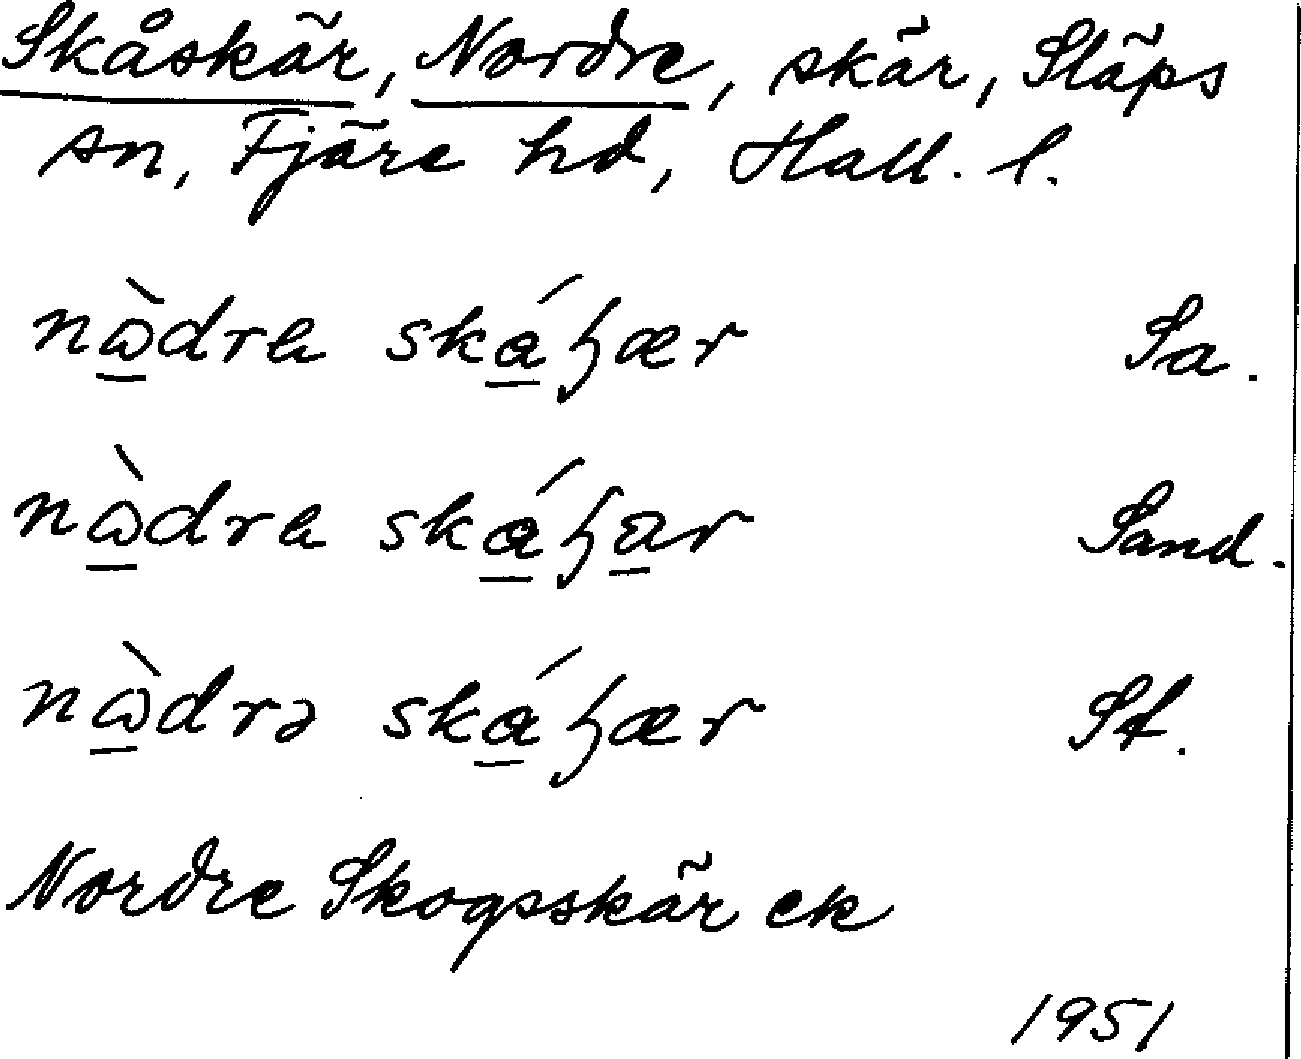 Skåskär, Nordre, skär, Släps
sn, Fjäre hd, Hall. l.
nɷ̀dra ská̲ꜧær Sa.
nɷ̀dra ská̲ꜧa̲r Sand.
nɷ̀drə ská̲ꜧær St.
Nordre Skogsskär ek
1951